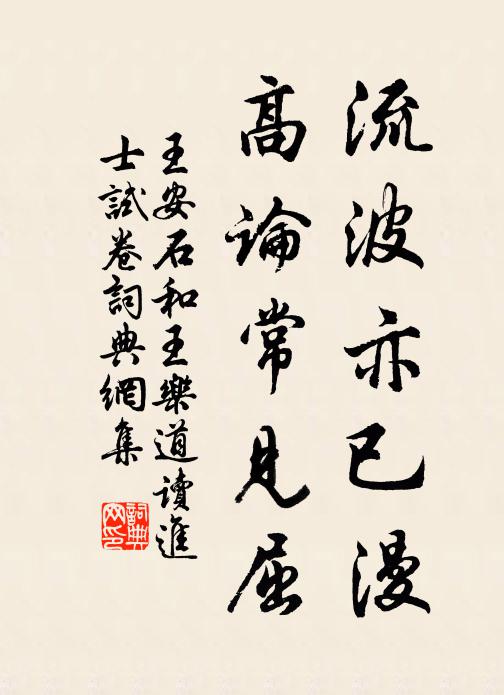 流波亦已漫
高論常見屈
王安石和王樂道讀進
士試卷詞典網集
詞典
网印